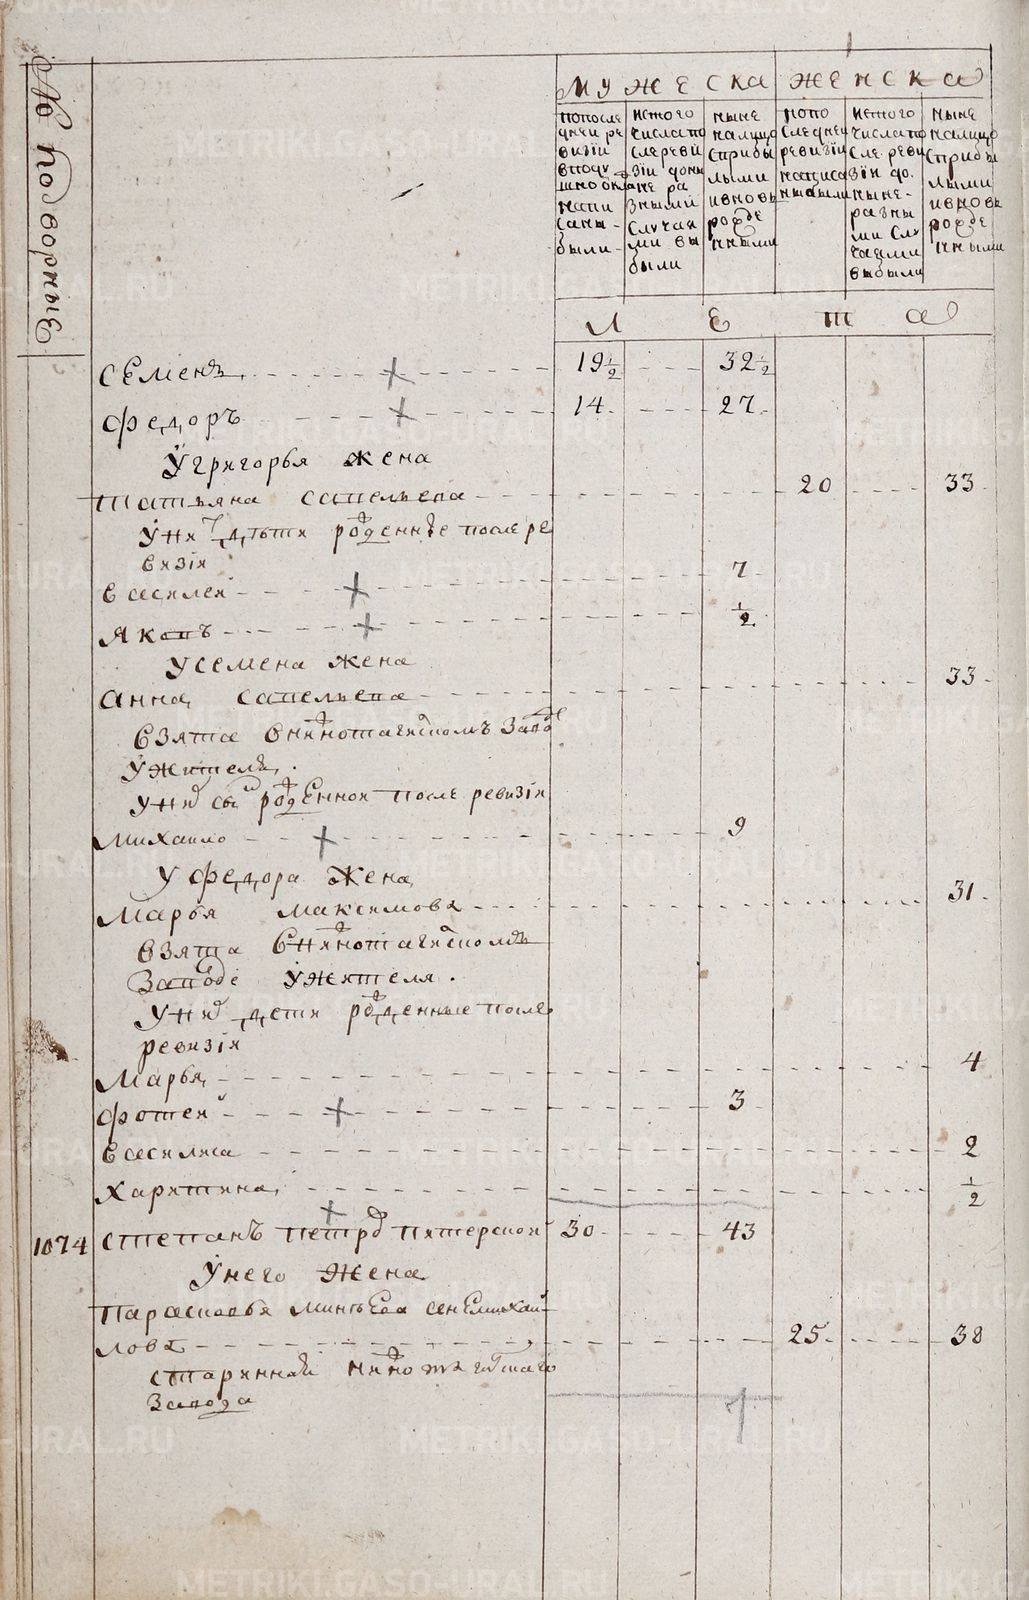 METRIKI.GASO-URAL.RU
№ Подворные
МУЖЕСКА ЖЕНСКА
попосле дней ре визiи вподу шной окла нати саны были
истого числа по сле реви зiи до ны не ра зными случая ми вы были
ныне налицо сприбы лыми ивновь рожде нными
попо следней ревизiи написа ны были
истого числа по сле реви зiи до ныне разны ми слу чаями выбыли
ныне налицо сприбы лыми ивновь рожде нными
Л Е Т А
Семенъ 19½ 32½
Федоръ 14 27
Угригорья жена
Татьяна Савельева 20 33
Уних дѣти рожденные после ре
визiи
Василей 7
Яковъ ½
Усемена жена
Анна Савельева 33
взята внижнотагилскомъ заводе
ужителя.
Уних сын рожденной после ревизiи
Михаило 9
Уфедора жена
Марья Максимова 31
взята внижнотагилскомъ
Заводе ужителя.
Уних дети рожденные после
ревизiи
Марья 4
Фотей 3
Василиса 2
Харитина ½
1074 Степанъ Петров Пятерской 30 43
Унего жена
Парасковья Минѣева Михай
лова 25 38
старинная нижнотагилскаго
Завода
1